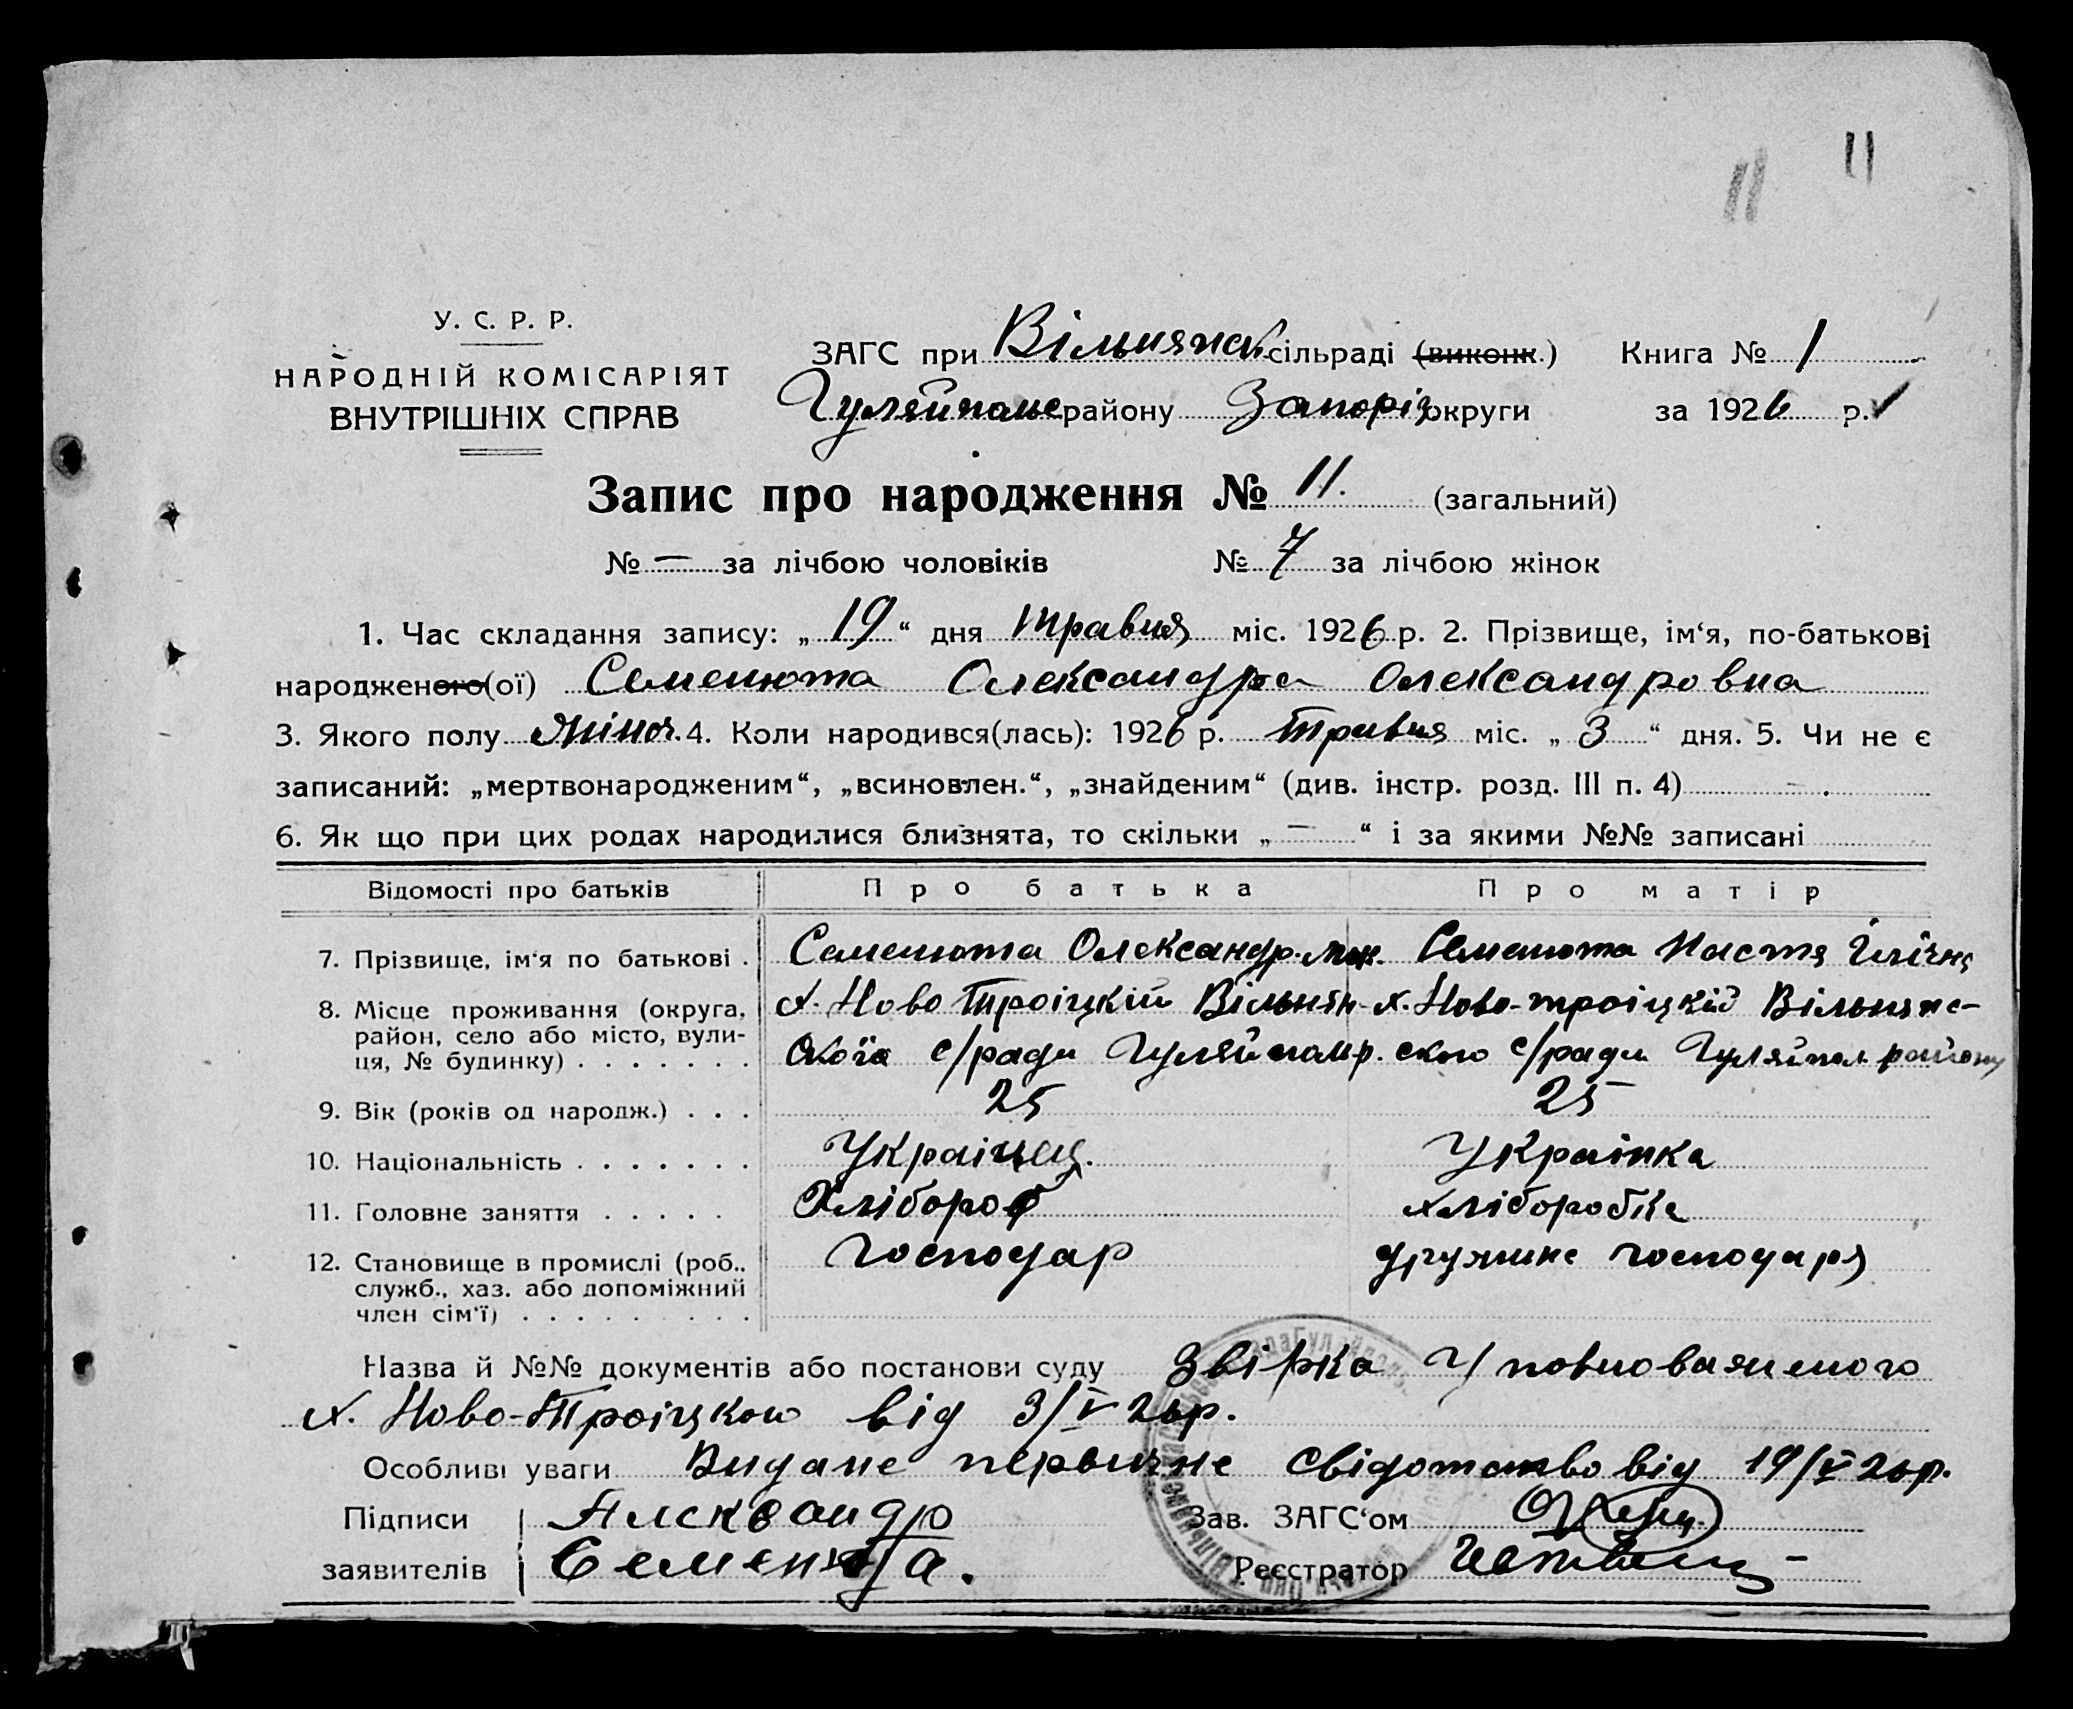 11
11
У. С. Р. Р.
НАРОДНІЙ КОМІСАРІЯТ
ВНУТРІШНІХ СПРАВ
ЗАГС при Вільнянській сільраді (виконк.) Книга № 1
Гуляйпольс району Запоріз округи за 1926 р.
Запис про народження № 11. (загальний)
№ — за лічбою чоловіків № 7 за лічбою жінок
1. Час складання запису: „19“ дня травня міс. 1926 р. 2. Прізвище, ім‘я, по-батькові
народженого(ої) Семенюта Олександра Олександровна
3. Якого полу жіноч. 4. Коли народився(лась): 1926 р. травня міс. „3“ дня. 5. Чи не є
записаний: „мертвонародженим“, „всиновлен.“, „знайденим“ (див. інстр. розд. III п. 4) —
6. Як що при цих родах народилися близнята, то скільки „—“ і за якими №№ записані
Відомості про батьків Про батька Про матір
7. Прізвище, ім‘я по батькові . Семенюта Олександр. Семенюта Настя Ілічна
8. Місце проживання (округа, х. Ново Троіцкій Вільнян- х. Ново-троіцкій Вільнянс-
район, село або місто, вули-
ця, № будинку) . . . . . . . ської с/ради Гуляйпол р. ского с/ради Гуляйпол району
9. Вік (років од народж.) . . . 25 25
10. Національність . . . . . . . Українец. Українка
11. Головне заняття . . . . . Хлібороб хліборобка
12. Становище в промислі (роб., Господар дружина господаря
служб., хаз. або допоміжний
член сім‘ї) . . . . . . . . .
Назва й №№ документів або постанови суду Звірка Уповноваженого
х. Ново-Троіцкого від 3/V 26р.
Особливі уваги Видане первичне свідотство від 19/V 26р.
Підписи Александр Зав. ЗАГС‘ом
заявителів Семенюта. Реєстратор